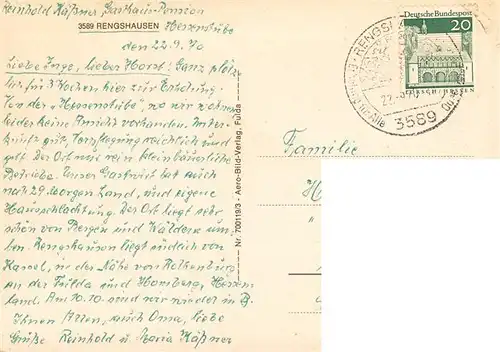 Reinhold Häßner, Gasthaus Pension
3589 RENGSHAUSEN Hessenstube
den 22.9.70
Liebe Inge, lieber Horst! Ganz plötz
für 3 Wochen hier zur Erholung
von der "Hessenstube", wo wir wohnen
leider keine Ansicht vorhanden. Unter-
kunft gut, Verpflegung reichlich und
gut. Der Ort nur rein kleinbäuerliche
Betriebe. Unser Gastwirt hat auch
noch 29 Morgen Land, und eigene
Hausschlachtung. Der Ort liegt sehr
schön von Bergen und Wäldern um-
ben. Rengshausen liegt südlich von
Kassel, in der Nähe von Rothenburg
an der Fulda und Homberg, Hessen-
land. Am 10.10. sind wir wieder in B.
Ihnen Allen, auch Oma, liebe
Grüße Reinhold u. Maria Häßner
Nr. 700119/3 - Aero-Bild-Verlag, Fulda
Deutsche Bundespost
20
LORSCH/HESSEN
RENGSH
3589
Familie
H